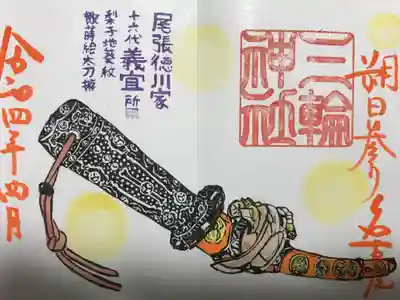 朔日参り 名古屋
三輪
神社
尾張徳川家
十六代 義宜 所
梨子地葵紋
散蒔絵太刀拵
令和四年四月